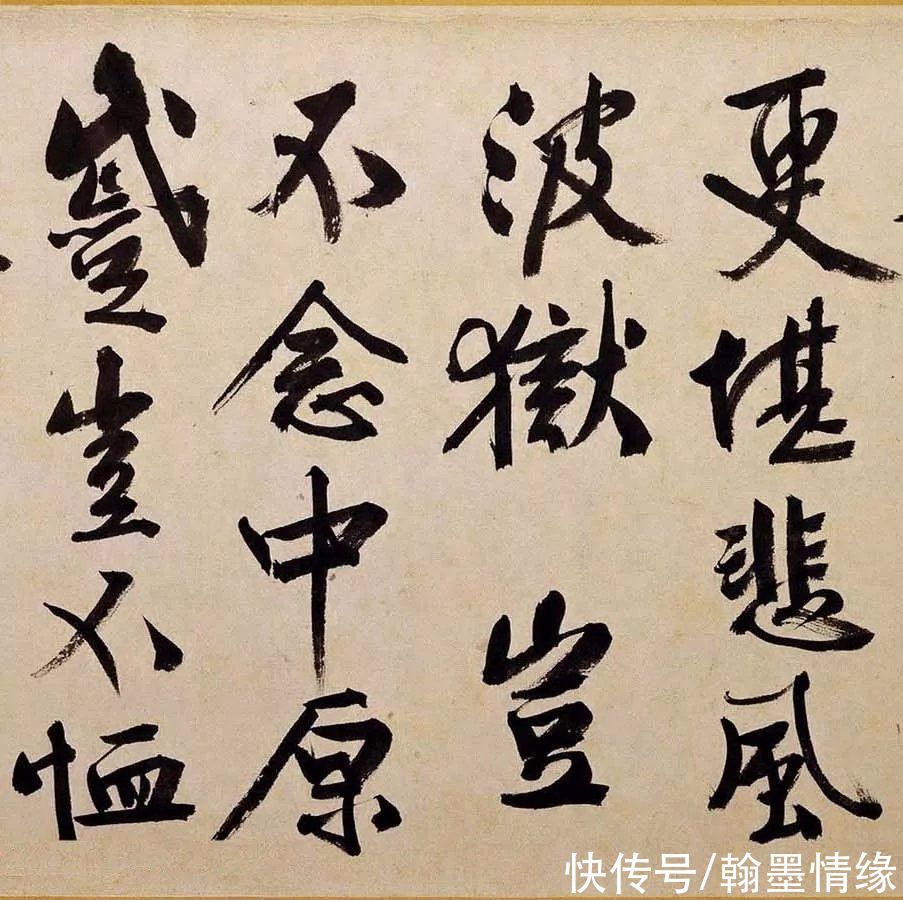 更堪悲風
波獄豈
不念中原
蹙豈不恤
快传号/翰墨情缘